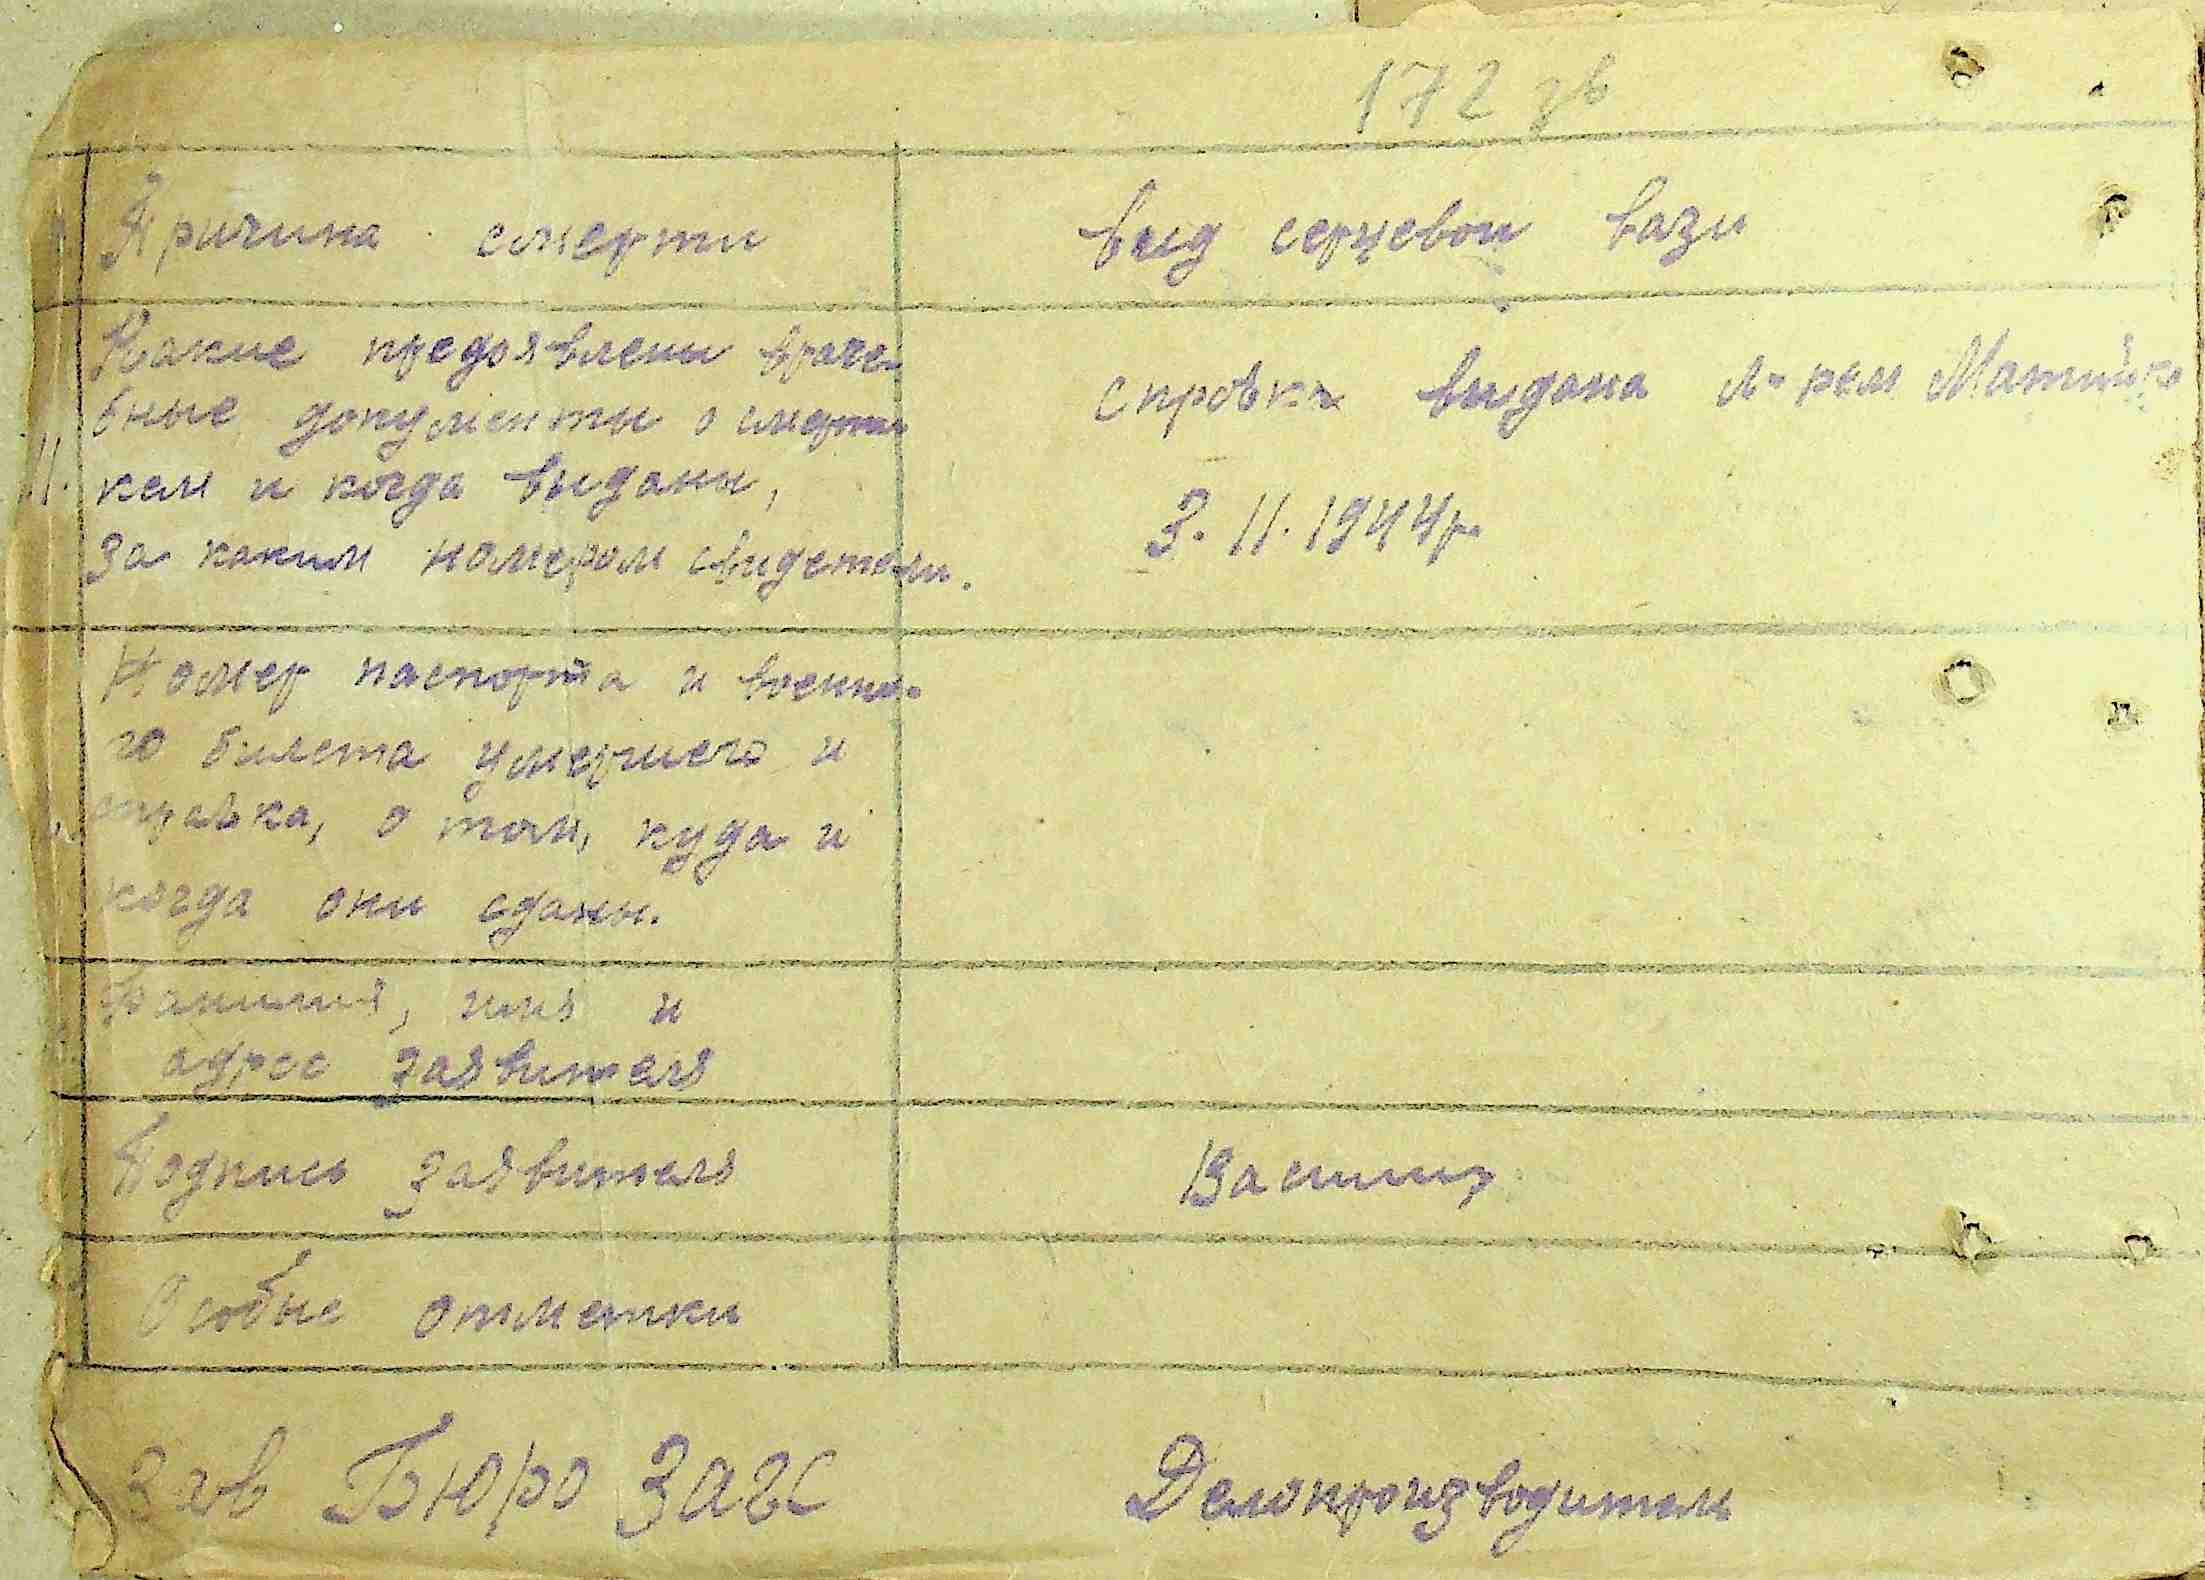 172 зв
Причина смерти
вид серцевои вази
Какие предоявлены враче-
бные документы о смерти
11. кем и когда выданы,
за каким номером свидетели.
справка выдана л-рем
3. 11. 1944р.
Номер паспорта и военно-
го билета умершего и
справка, о том, куда и
когда они сданы.
Фамилия, имя и
адрес заявителя
Подпись заявителя
Особые отметки
Зав Бюро ЗАГС
Делопроизводитель